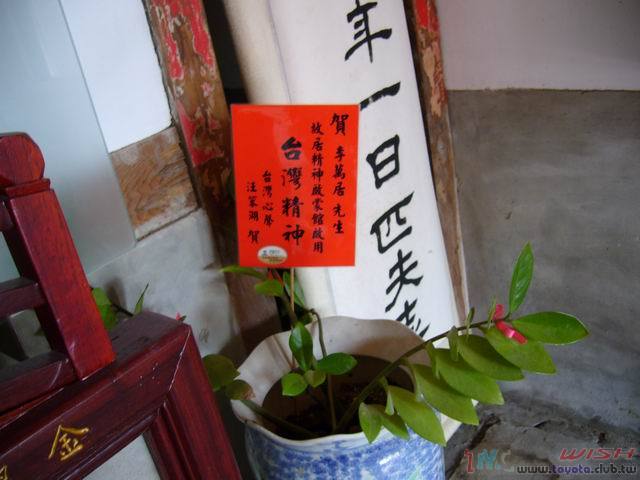 賀 李萬居 先生
故居精神啟蒙館啟用
台灣精神
台灣心聲
汪笨湖 賀
年一日匹夫
金
WISH
www.toyota.club.tw